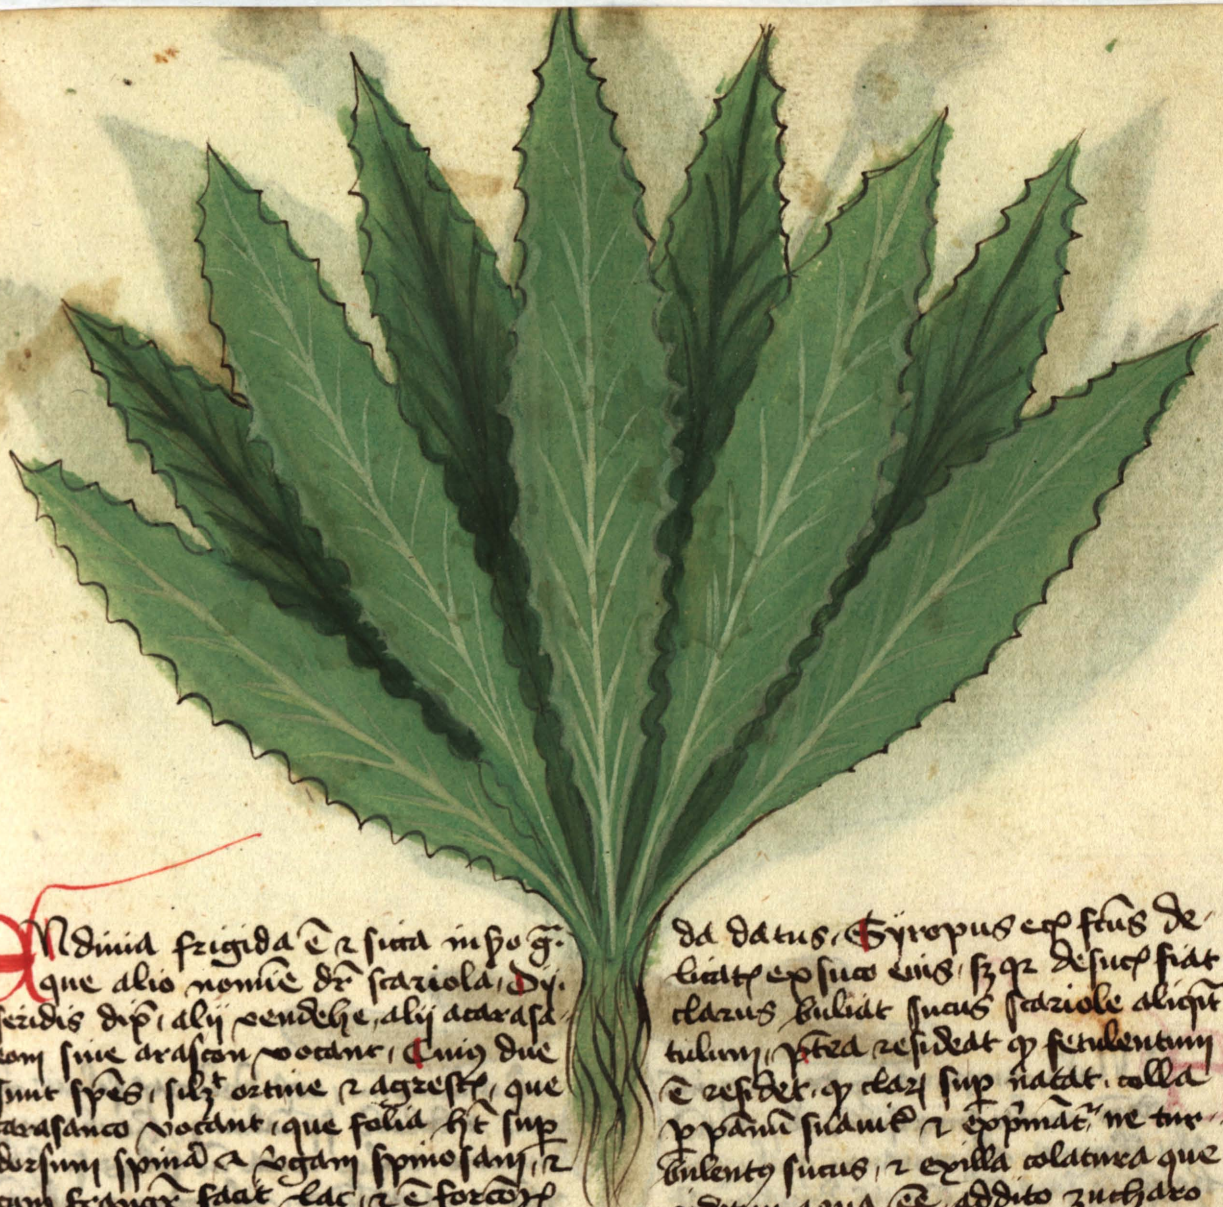 Endiuia frigida ē ⁊ sicca in ſcdo g̃.
que alio nomīe dr̄ scariola, Dy
seridis dix̄, alij vendehe, alij atarasa
con siue arascon vocant, Cui⁹ due
sunt sp̄es, silꝫ ortiue ⁊ agrestꝭ, que
tarasanco vocant, que folia hn̄t sup̄
dorsum spinā ⁊ v̄gam spinosam, ⁊
cum frangr̄ facit lac, ⁊ ē
da datus, Syropus fc̄us de
licatꝭ ex suco eius, de succ̄ fiat
clarus buliat sucus scariole aliqn̄
tulum, p̄tea resideat qꝫ fetulentum
ē residet, qꝫ clarꝫ sup̄ natat, colla
ꝑ pānū suauitꝭ ⁊ exp̄mat̄, ne tur
bulent⁹ sucus, ⁊ ex illa colatura que
addito zucharo